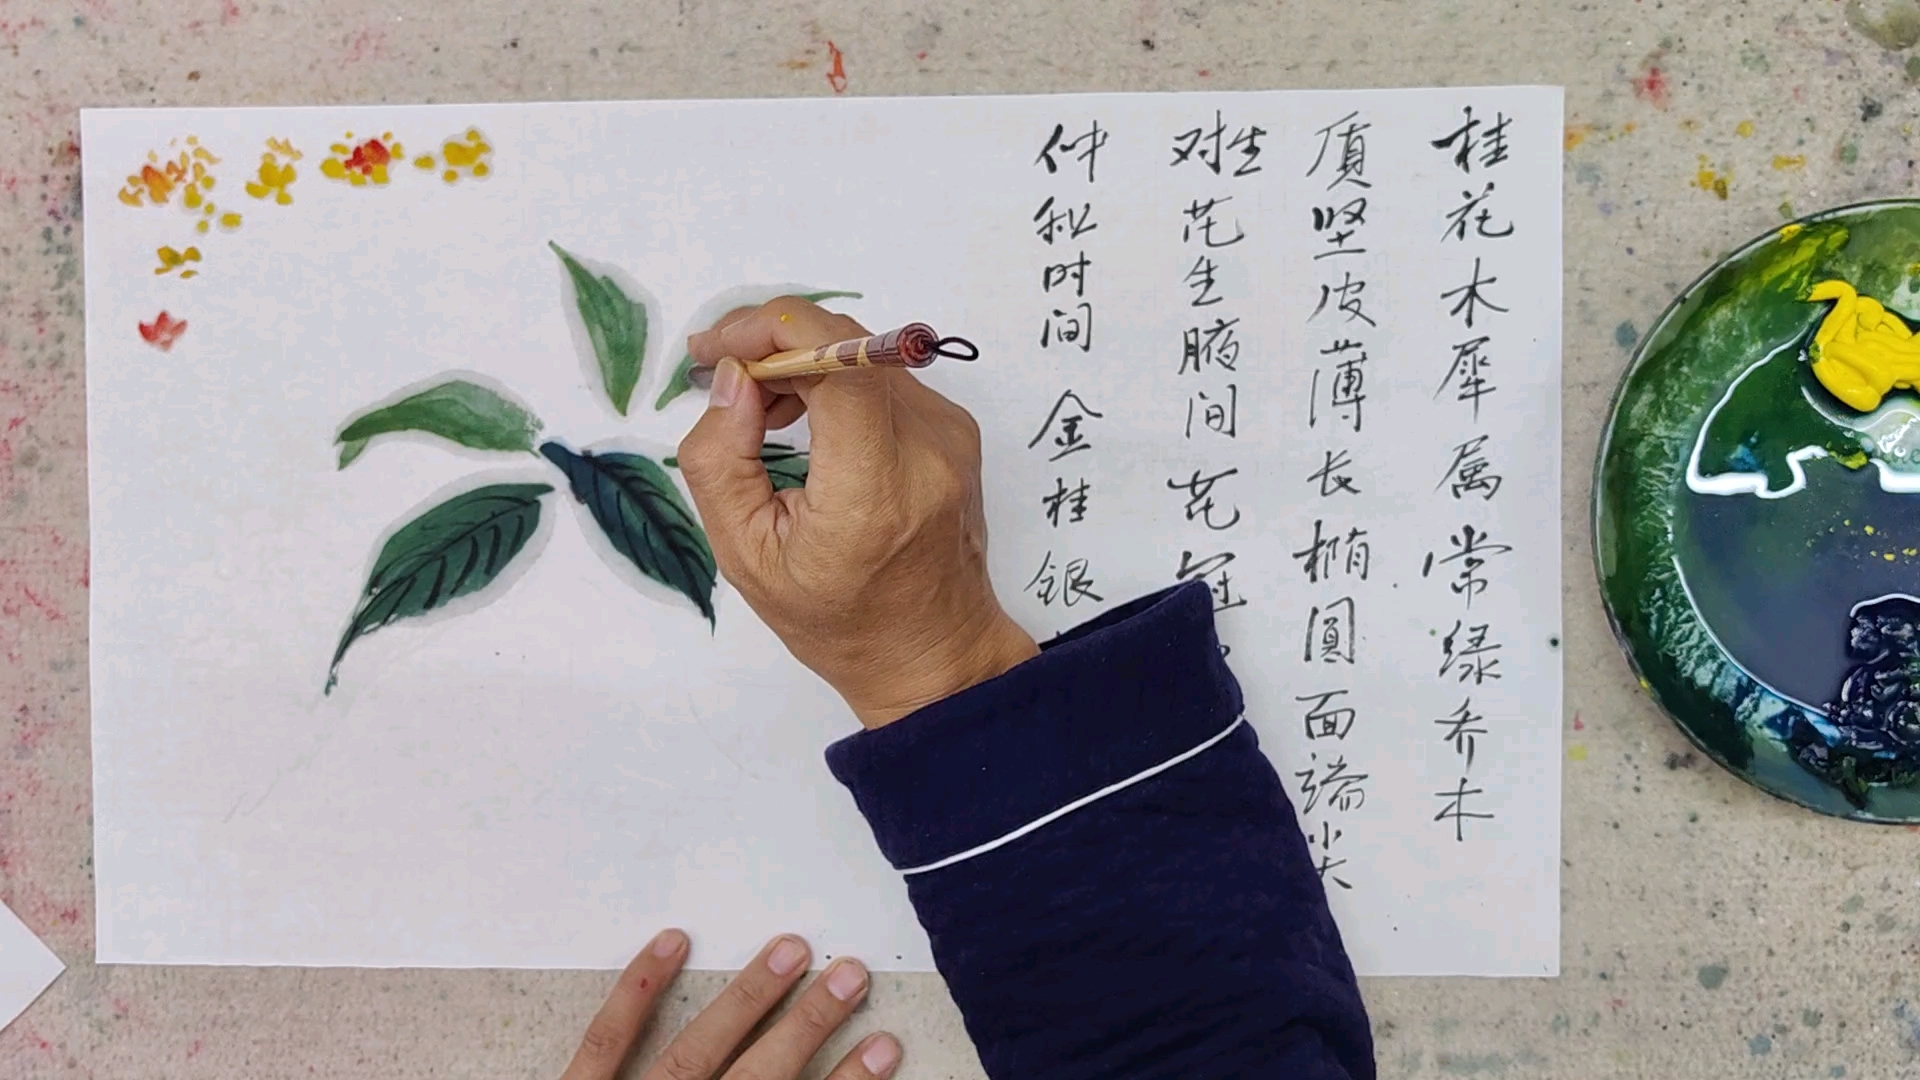 桂花木犀属常绿乔木
质坚皮薄长椭圆面端尖
对生花生腋间花冠
仲秋时间金桂银